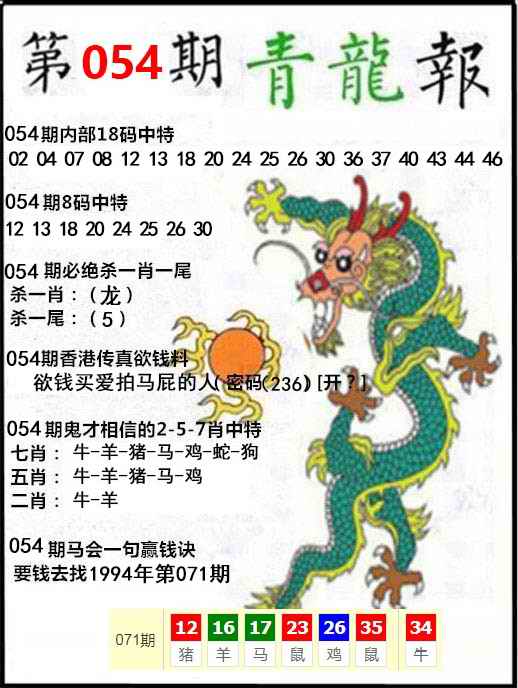 第054期青龍報
054期内部18码中特
02 04 07 08 12 13 18 20 24 25 26 30 36 37 40 43 44 46
054期8码中特
12 13 18 20 24 25 26 30
054 期必绝杀一肖一尾
杀一肖：（龙）
杀一尾：（5）
054期香港传真欲钱料
欲钱买爱拍马屁的人(密码(236)[开？]
054期鬼才相信的2-5-7肖中特
七肖：牛-羊-猪-马-鸡-蛇-狗
五肖：牛-羊-猪-马-鸡
二肖：牛-羊
054期马会一句赢钱诀
要钱去找1994年第071期
071期 12 16 17 23 26 35 34
猪 羊 马 鼠 鸡 鼠 牛